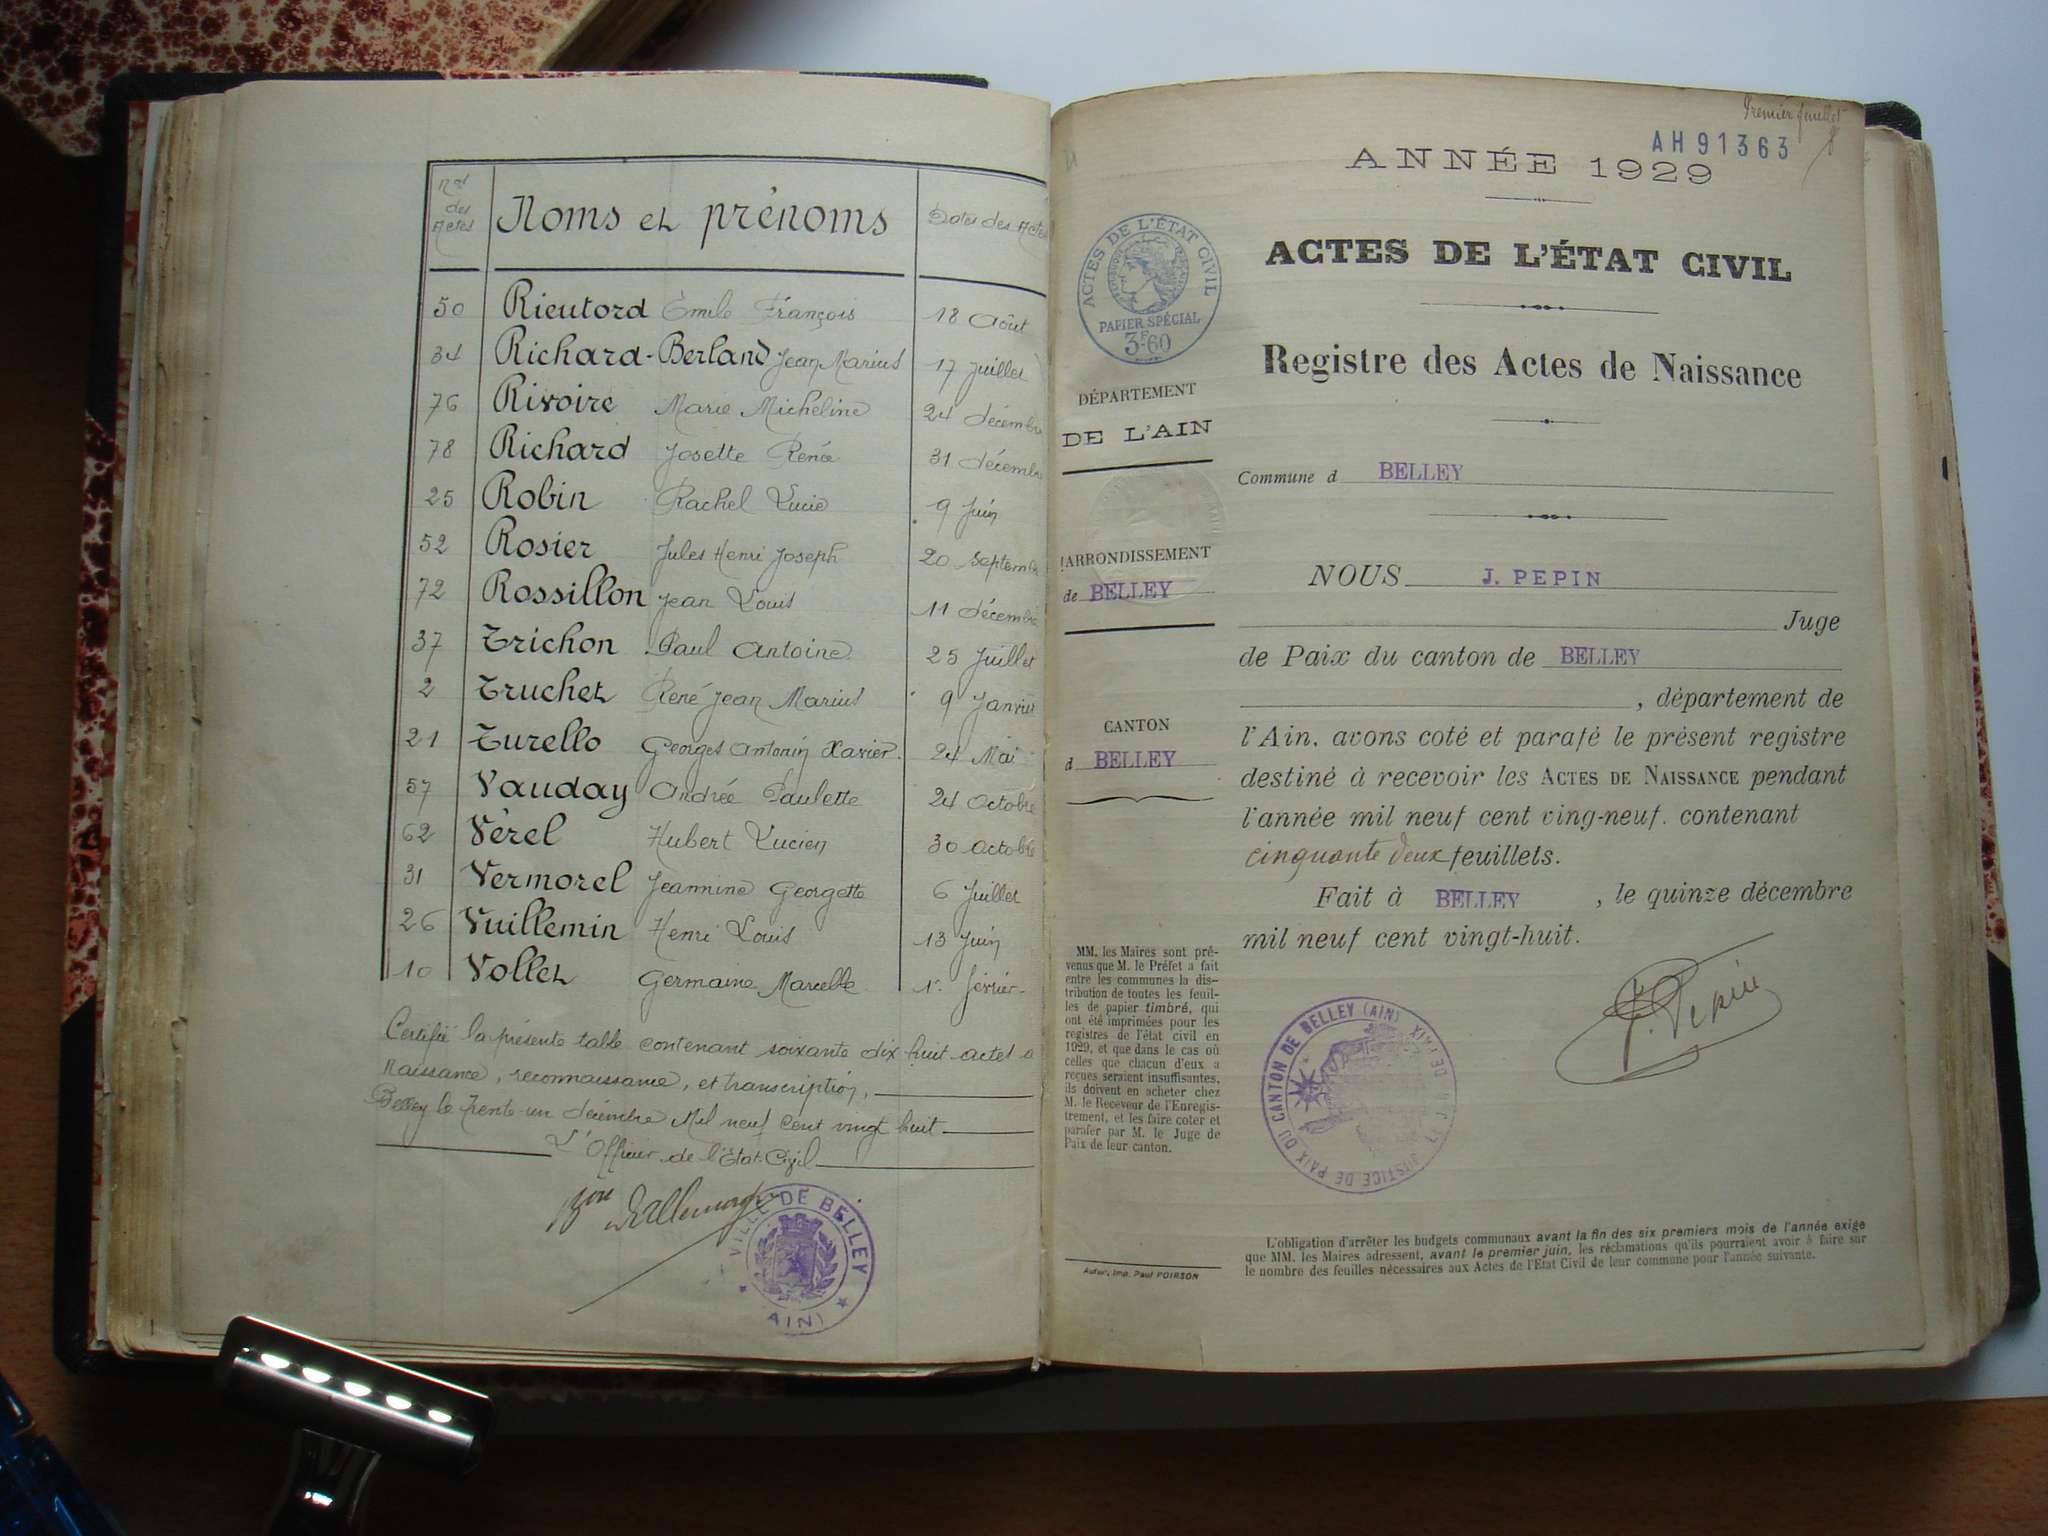 Nos des Actes Noms et prénoms Dates des Actes
50 Rieutord Emile François 18 Août
34 Richard-Berland Jean Marius 17 Juillet
76 Rivoire Marie Micheline 24 décembre
78 Richard Josette Renée 31 décembre
25 Robin Rachel Lucie 9 Juin
52 Rosier Jules Henri Joseph 20 Septemb
72 Rossillon Jean Louis 11 décembre
37 Trichon Paul Antoine 25 Juillet
2 Truchet René Jean Marius 9 Janvier
21 Turello Georges Antonin Xavier. 24 Mai
57 Vauday Andrée Paulette 24 Octobre
62 Vérel Hubert Lucien 30 Octobre
31 Vermorel Jeannine Georgette 6 Juillet
26 Vuillemin Henri Louis 13 Juin
10 Vollet Germaine Marcelle 1er février
Certifié la présente table contenant soixante dix huit actes d
naissance, reconnaissance, et transcription,
Belley le trente un décembre Mil neuf cent vingt huit
L'Officier de l'Etat-Civil
Bon Dallemagne
VILLE DE BELLEY
(AIN)
Premier feuillet
AH91363
ANNÉE 1929
ACTES DE L'ÉTAT CIVIL
PAPIER SPÉCIAL
3F60
ACTES DE L'ÉTAT CIVIL
Registre des Actes de Naissance
DÉPARTEMENT
DE L'AIN
Commune d BELLEY
ARRONDISSEMENT
de BELLEY
CANTON
d BELLEY
NOUS J. PEPIN
Juge
de Paix du canton de BELLEY
, département de
l'Ain, avons coté et parafé le présent registre
destiné à recevoir les ACTES DE NAISSANCE pendant
l'année mil neuf cent ving-neuf, contenant
cinquante deux feuillets.
Fait à BELLEY , le quinze décembre
mil neuf cent vingt-huit.
J. Pepin
JUSTICE DE PAIX DU CANTON DE BELLEY (AIN)
MM. les Maires sont pré-
venus que M. le Préfet a fait
entre les communes la dis-
tribution de toutes les feuil-
les de papier timbré, qui
ont été imprimées pour les
registres de l'état civil en
1929, et que dans le cas où
celles que chacun d'eux a
reçues seraient insuffisantes,
ils doivent en acheter chez
M. le Receveur de l'Enregis-
trement, et les faire coter et
parafer par M. le Juge de
Paix de leur canton.
Autun, Imp. Paul POIRSON
L'obligation d'arrêter les budgets communaux avant la fin des six premiers mois de l'année exige
que MM. les Maires adressent, avant le premier juin, les réclamations qu'ils pourraient avoir à faire sur
le nombre des feuilles nécessaires aux Actes de l'Etat Civil de leur commune pour l'année suivante.